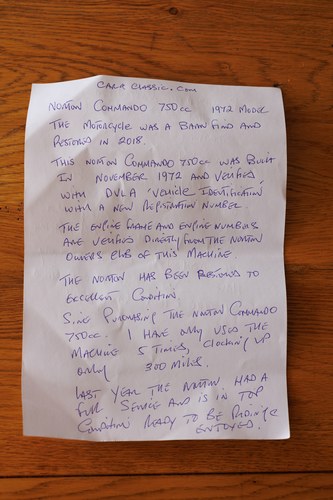 CAR & CLASSIC.COM
NORTON COMMANDO 750cc 1972 MODEL
THE MOTORCYCLE WAS A BARN FIND AND
RESTORED IN 2018.
THIS NORTON COMMANDO 750cc WAS BUILT
IN NOVEMBER 1972 AND VERIFIED,
WITH DVLA 'VEHICLE IDENTIFICATION'
WITH A NEW REGISTRATION NUMBER.
THE ENGINE FRAME AND ENGINE NUMBERS
ARE VERIFIED DIRECTLY FROM THE NORTON
OWNERS CLUB OF THIS MACHINE.
THE NORTON HAS BEEN RESTORED TO
EXCELLENT CONDITION.
SINCE PURCHASING THE NORTON COMMANDO
750cc. I HAVE ONLY USED THE
MACHINE 5 TIMES, CLOCKING UP
ONLY 300 MILES.
LAST YEAR THE NORTON HAD A
FULL SERVICE AND IS IN TOP
CONDITION READY TO BE RIDING &
ENJOYED.